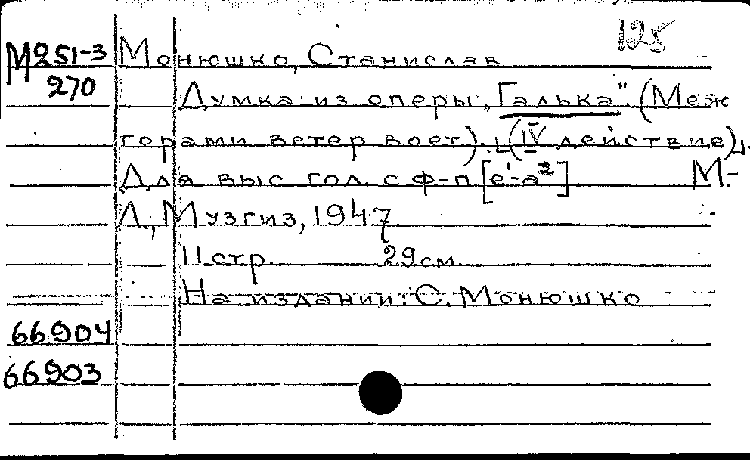 125
М251-3 Монюшко, Станислав
270 Думка из оперы „Галька" (Меж
горами ветер воет). (IV действие).
Для выс гол. с ф-п [e¹-a²] М.-
Л., Музгиз, 1947
11 стр. 29 см.
На издании: С. Монюшко
66904
66903